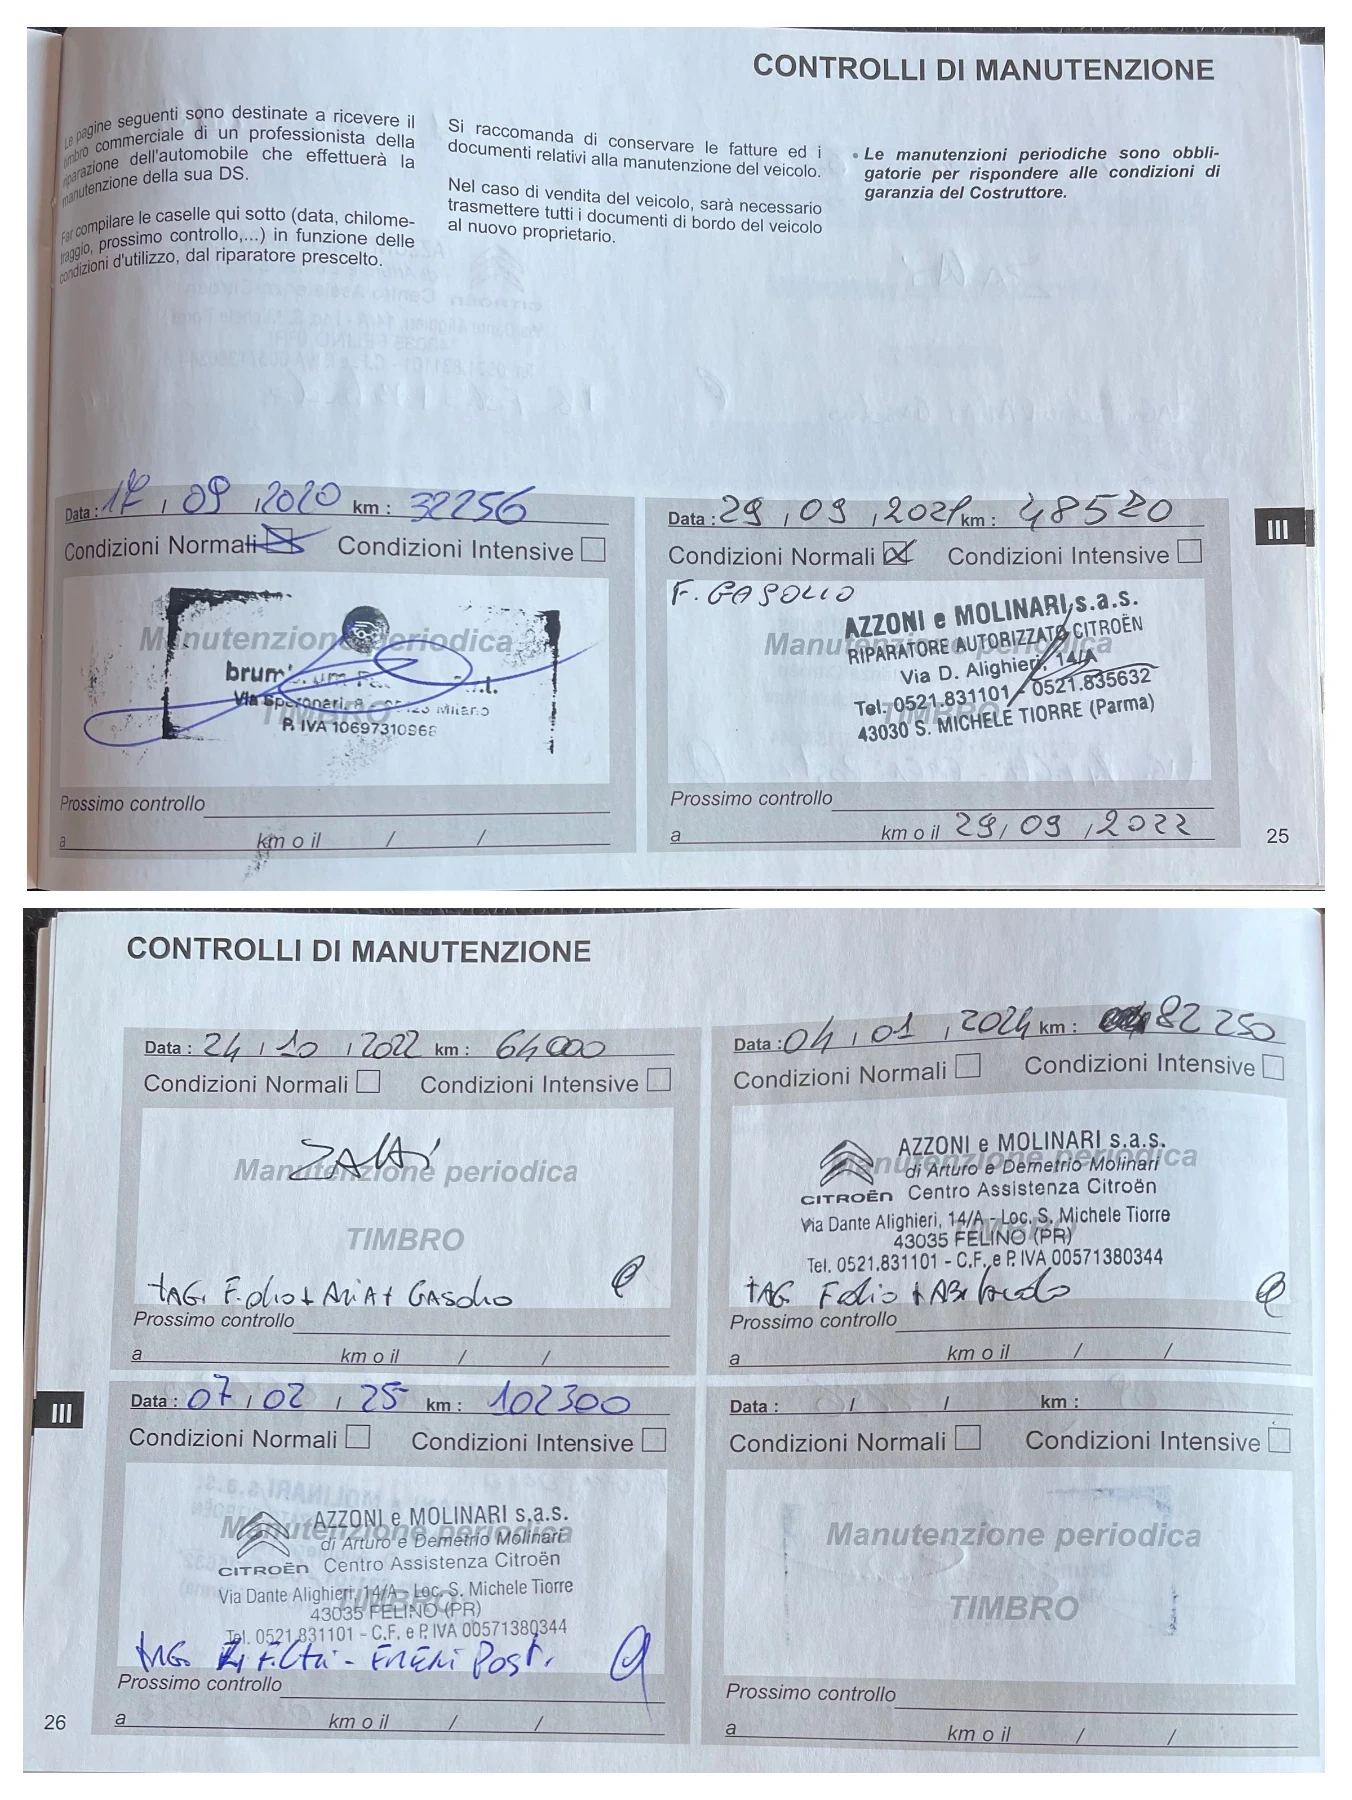 CONTROLLI DI MANUTENZIONE
Le pagine seguenti sono destinate a ricevere il
timbro commerciale di un professionista della
riparazione dell'automobile che effettuerà la
manutenzione della sua DS.
Far compilare le caselle qui sotto (data, chilome-
traggio, prossimo controllo,...) in funzione delle
condizioni d'utilizzo, dal riparatore prescelto.
Si raccomanda di conservare le fatture ed i
documenti relativi alla manutenzione del veicolo.
Nel caso di vendita del veicolo, sarà necessario
trasmettere tutti i documenti di bordo del veicolo
al nuovo proprietario.
• Le manutenzioni periodiche sono obbli-
gatorie per rispondere alle condizioni di
garanzia del Costruttore.
Data : 17 / 09 / 2020 km : 32256
Condizioni Normali Condizioni Intensive
Manutenzione periodica
brum
Via Speronari, 8 Milano
TIMBRO
P. IVA 10697310968
Prossimo controllo
a km o il / /
Data : 29 / 09 / 2021 km : 48520
Condizioni Normali Condizioni Intensive
F. GASOLIO
AZZONI e MOLINARI s.a.s.
RIPARATORE AUTORIZZATO CITROËN
Manutenzione periodica
Via D. Alighieri, 14/A
Tel. 0521.831101 / 0521.835632
TIMBRO
43030 S. MICHELE TIORRE (Parma)
Prossimo controllo
a km o il 29 / 09 / 2022
III
25
CONTROLLI DI MANUTENZIONE
Data : 24 / 10 / 2022 km : 64000
Condizioni Normali Condizioni Intensive
Manutenzione periodica
TIMBRO
tAG. F. olio + AriA + GASolio
Prossimo controllo
a km o il / /
Data : 04 / 01 / 2024 km : 82250
Condizioni Normali Condizioni Intensive
AZZONI e MOLINARI s.a.s.
Manutenzione periodica
di Arturo e Demetrio Molinari
CITROËN Centro Assistenza Citroën
Via Dante Alighieri, 14/A - Loc. S. Michele Tiorre
TIMBRO
43035 FELINO (PR)
Tel. 0521.831101 - C.F. e P. IVA 00571380344
tAG F olio + ABitacolo
Prossimo controllo
a km o il / /
III
Data : 07 / 02 / 25 km : 102300
Condizioni Normali Condizioni Intensive
AZZONI e MOLINARI s.a.s.
Manutenzione periodica
di Arturo e Demetrio Molinari
CITROËN Centro Assistenza Citroën
Via Dante Alighieri, 14/A - Loc. S. Michele Tiorre
TIMBRO
43035 FELINO (PR)
Tel. 0521.831101 - C.F. e P. IVA 00571380344
tAG. Filtri - FrEni Post.
Prossimo controllo
a km o il / /
Data : / / km :
Condizioni Normali Condizioni Intensive
Manutenzione periodica
TIMBRO
Prossimo controllo
a km o il / /
26